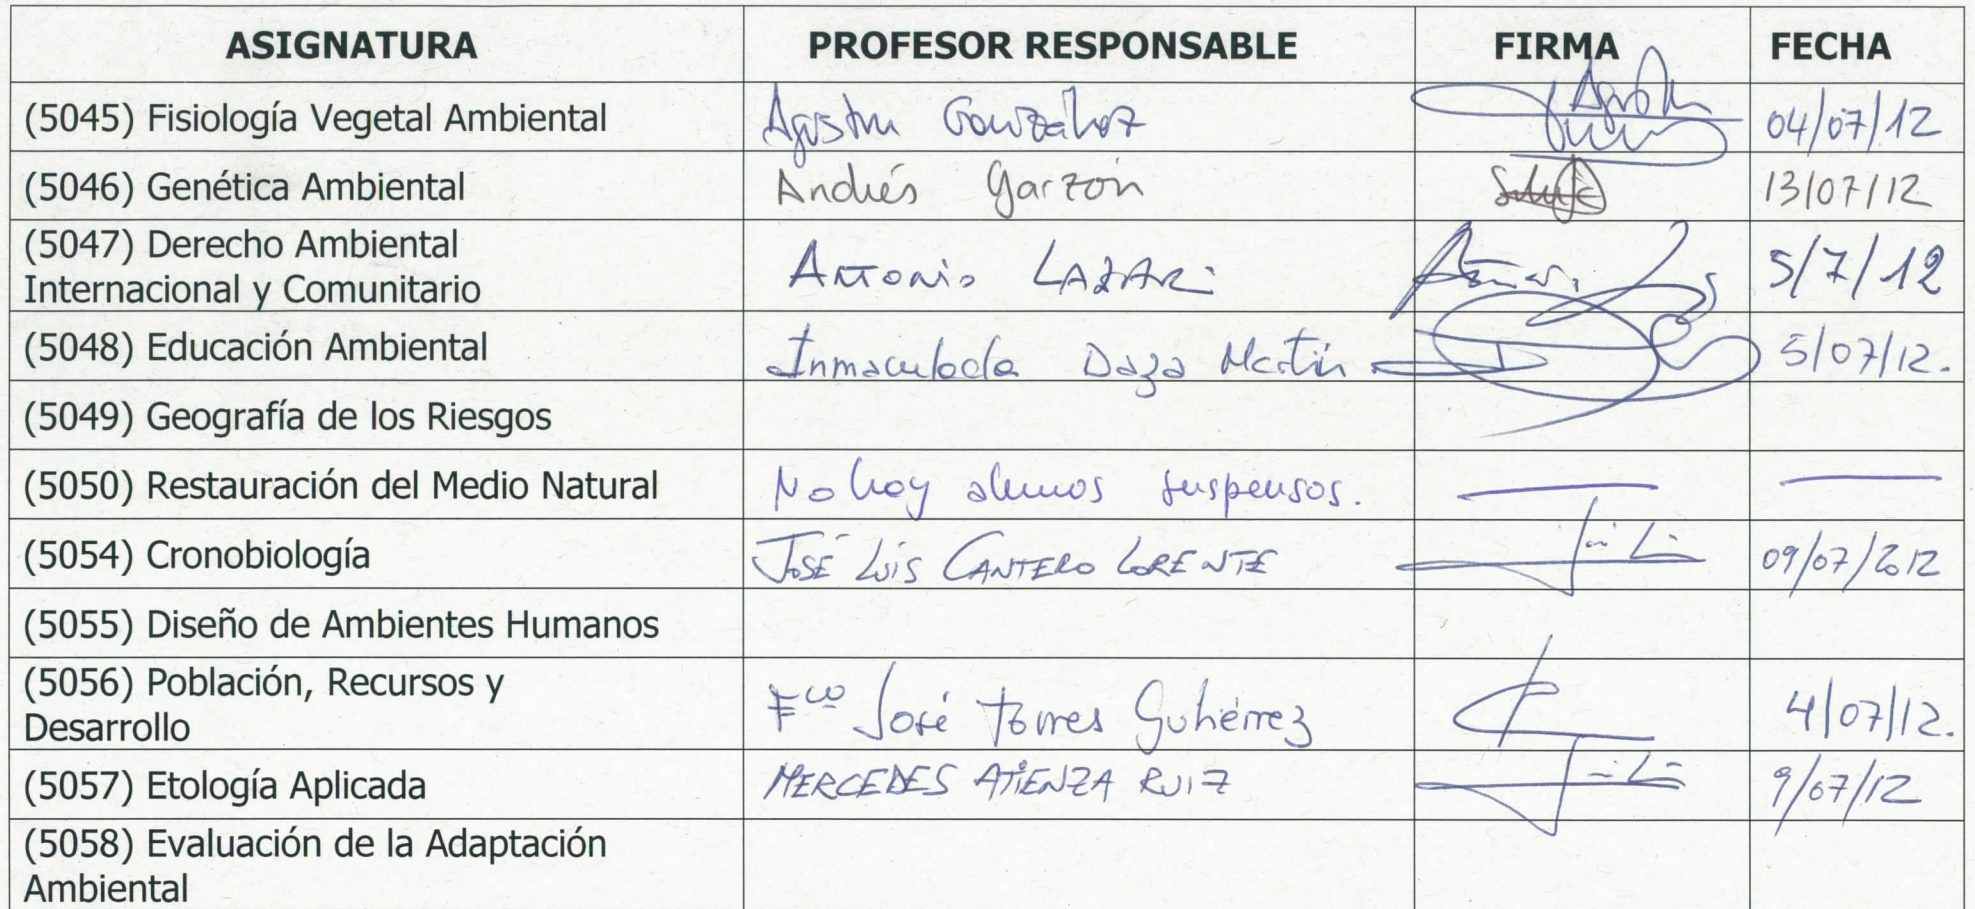 ASIGNATURA PROFESOR RESPONSABLE FIRMA FECHA
(5045) Fisiología Vegetal Ambiental Agustín González 04/07/12
(5046) Genética Ambiental Andrés Garzón 13/07/12
(5047) Derecho Ambiental
Internacional y Comunitario Antonio LAZARI 5/7/12
(5048) Educación Ambiental Inmaculada Daza Martín 5/07/12.
(5049) Geografía de los Riesgos
(5050) Restauración del Medio Natural No hay alumnos suspensos.
(5054) Cronobiología JOSÉ LUIS CANTERO LORENTE 09/07/2012
(5055) Diseño de Ambientes Humanos
(5056) Población, Recursos y
Desarrollo Fco José Torres Gutiérrez 4/07/12.
(5057) Etología Aplicada MERCEDES ATIENZA RUIZ 9/07/12
(5058) Evaluación de la Adaptación
Ambiental